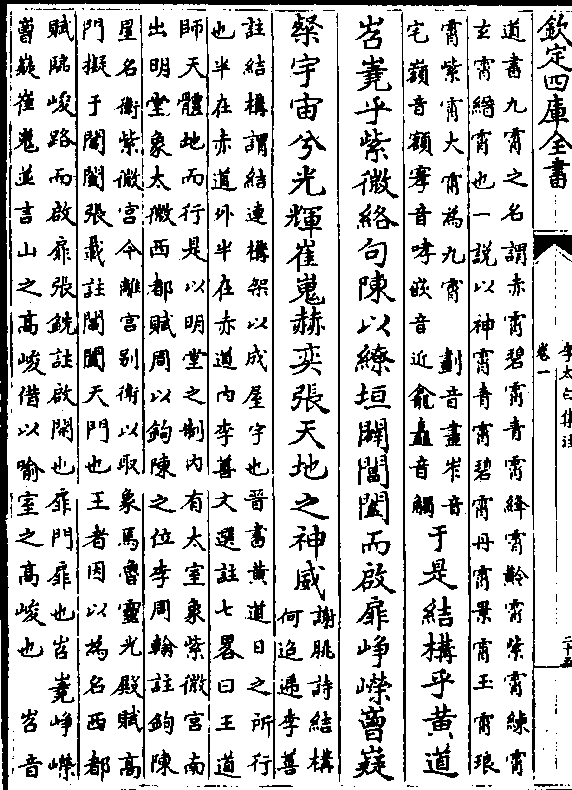 欽定四庫全書
李太白集注
卷一
二十五
道書九霄之名謂赤霄碧霄青霄絳霄黅霄紫霄練霄
玄霄縉霄也一説以神霄青霄碧霄丹霄景霄玉霄琅
霄紫霄大霄為九霄 劃音畫岝音
宅嶺音額寥音哮嵌音近龕矗音觸
于是結構乎黄道
岧嶤乎紫微絡句陳以繚垣闢閶闔而啟扉崢嶸嶒嶷
粲宇宙兮光輝崔嵬赫奕張天地之神威
謝朓詩結構
何迢遞李善
註結構謂結連構架以成屋宇也晉書黄道日之所行
也半在赤道外半在赤道内李善文選註七畧曰王道
師天體地而行是以明堂之制内有太室象紫微宫南
出明堂象太微西都賦周以鉤陳之位李周翰註鉤陳
星名衛紫微宫今離宫别衛以取象焉魯靈光殿賦高
門擬于閶闔張載註閶闔天門也王者因以為名西都
賦臨峻路而啟扉張銑註啟開也扉門扉也岧嶤崢嶸
嶒嶷崔嵬並言山之高峻借以喻室之高峻也 岧音